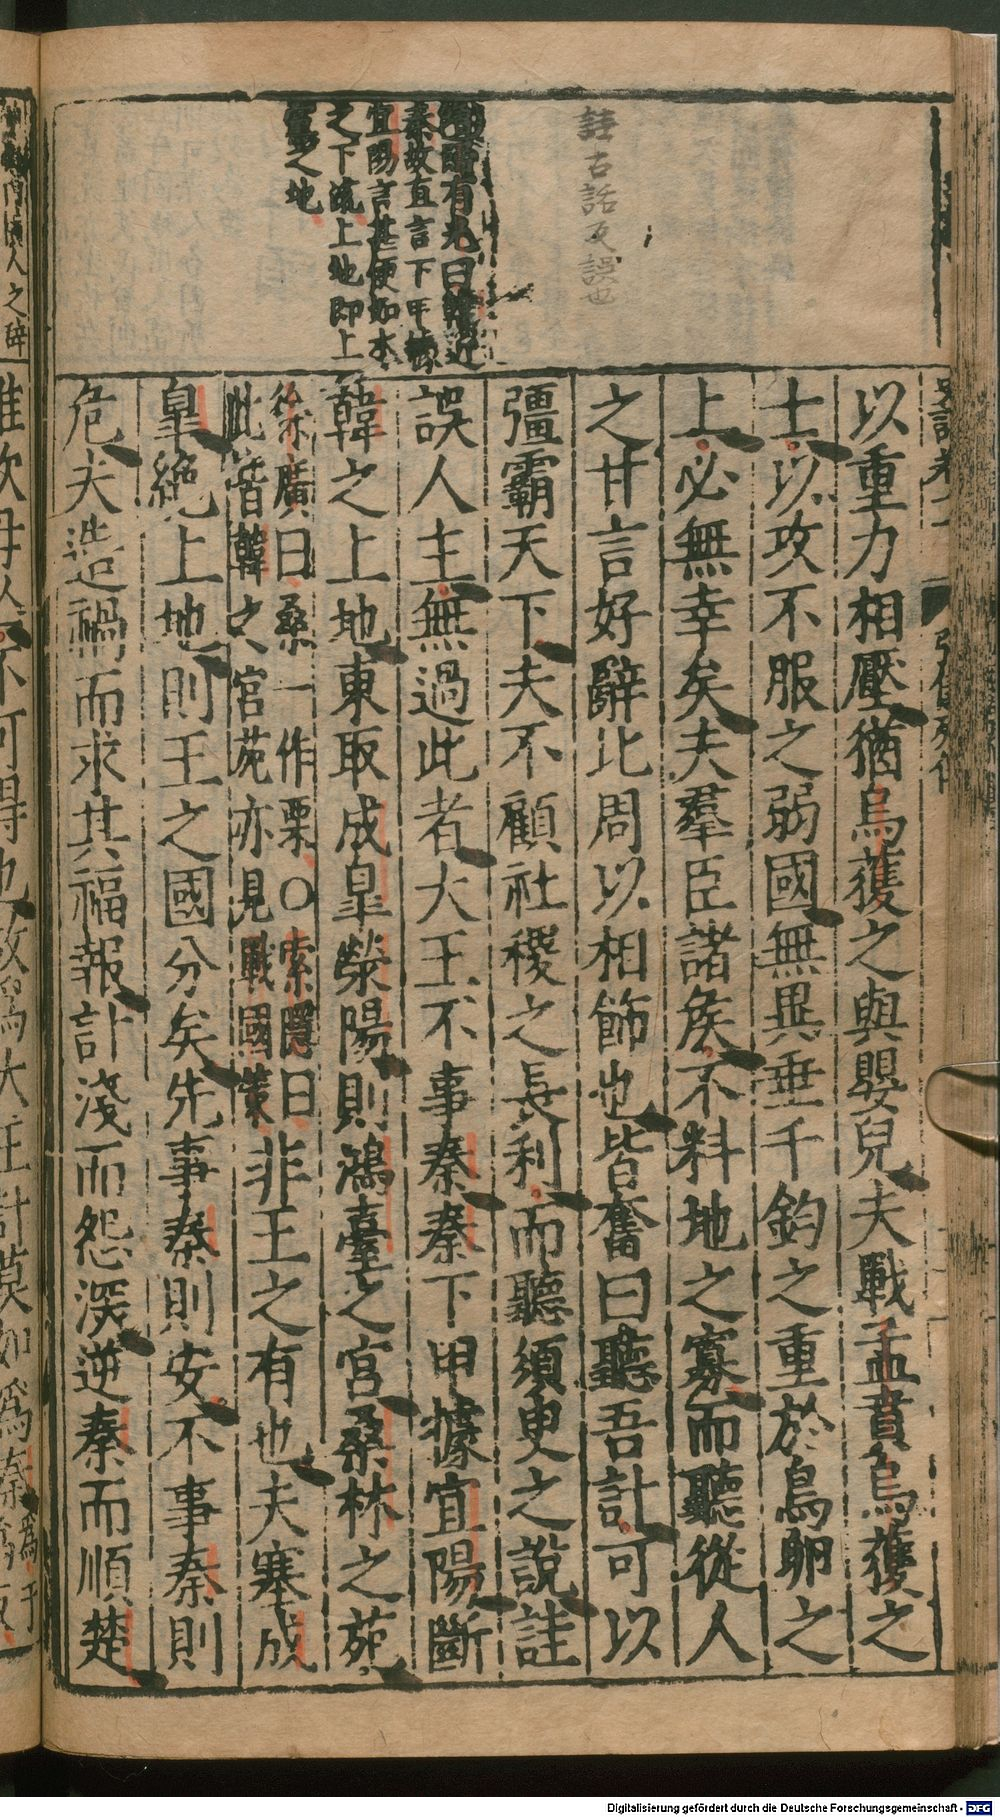 詿古話反誤也
有光曰韓近
秦故直言下甲據
宜陽言甚便如水
之下流上地即上
黨之地
以重力相壓猶烏獲之與嬰兒夫戰孟賁烏獲之
士以攻不服之弱國無異垂千鈞之重於鳥卵之
上必無幸矣夫羣臣諸矦不料地之寡而聽從人
之甘言好辭比周以相飾也皆奮曰聽吾計可以
彊霸天下夫不顧社稷之長利而聽須臾之說詿
誤人主無過此者大王不事秦秦下甲據宜陽斷
韓之上地東取成皐滎陽則鴻臺之宮桑林之苑
徐廣曰桑一作栗○索隱曰
此皆韓之宮苑亦見戰國策
非王之有也夫塞成
皐絶上地則王之國分矣先事秦則安不事秦則
危夫造禍而求其福報計淺而怨深逆秦而順楚
Digitalisierung gefördert durch die Deutsche Forschungsgemeinschaft - DFG